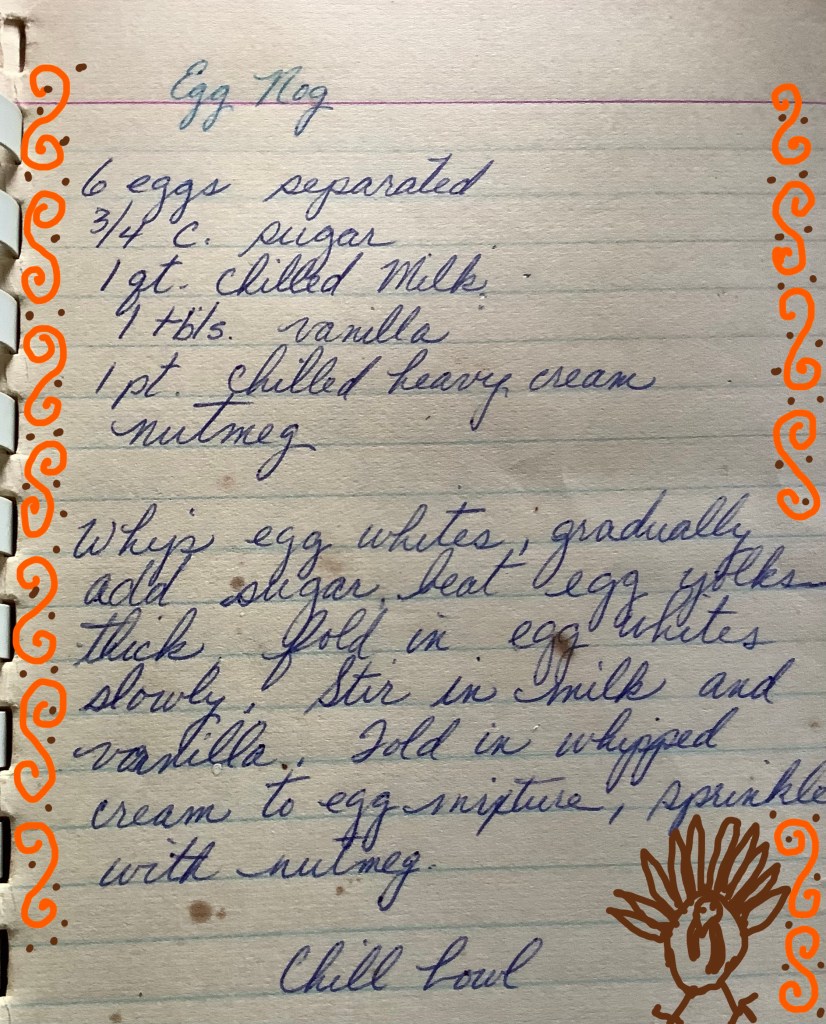 Egg Nog
6 eggs separated
3/4 c. sugar
1 qt. chilled Milk
1 tbls. vanilla
1 pt. chilled heavy cream
nutmeg
Whip egg whites, gradually
add sugar, beat egg yolks
thick. fold in egg whites
slowly. Stir in milk and
vanilla. Fold in whipped
cream to egg mixture, sprinkle
with nutmeg.
Chill bowl